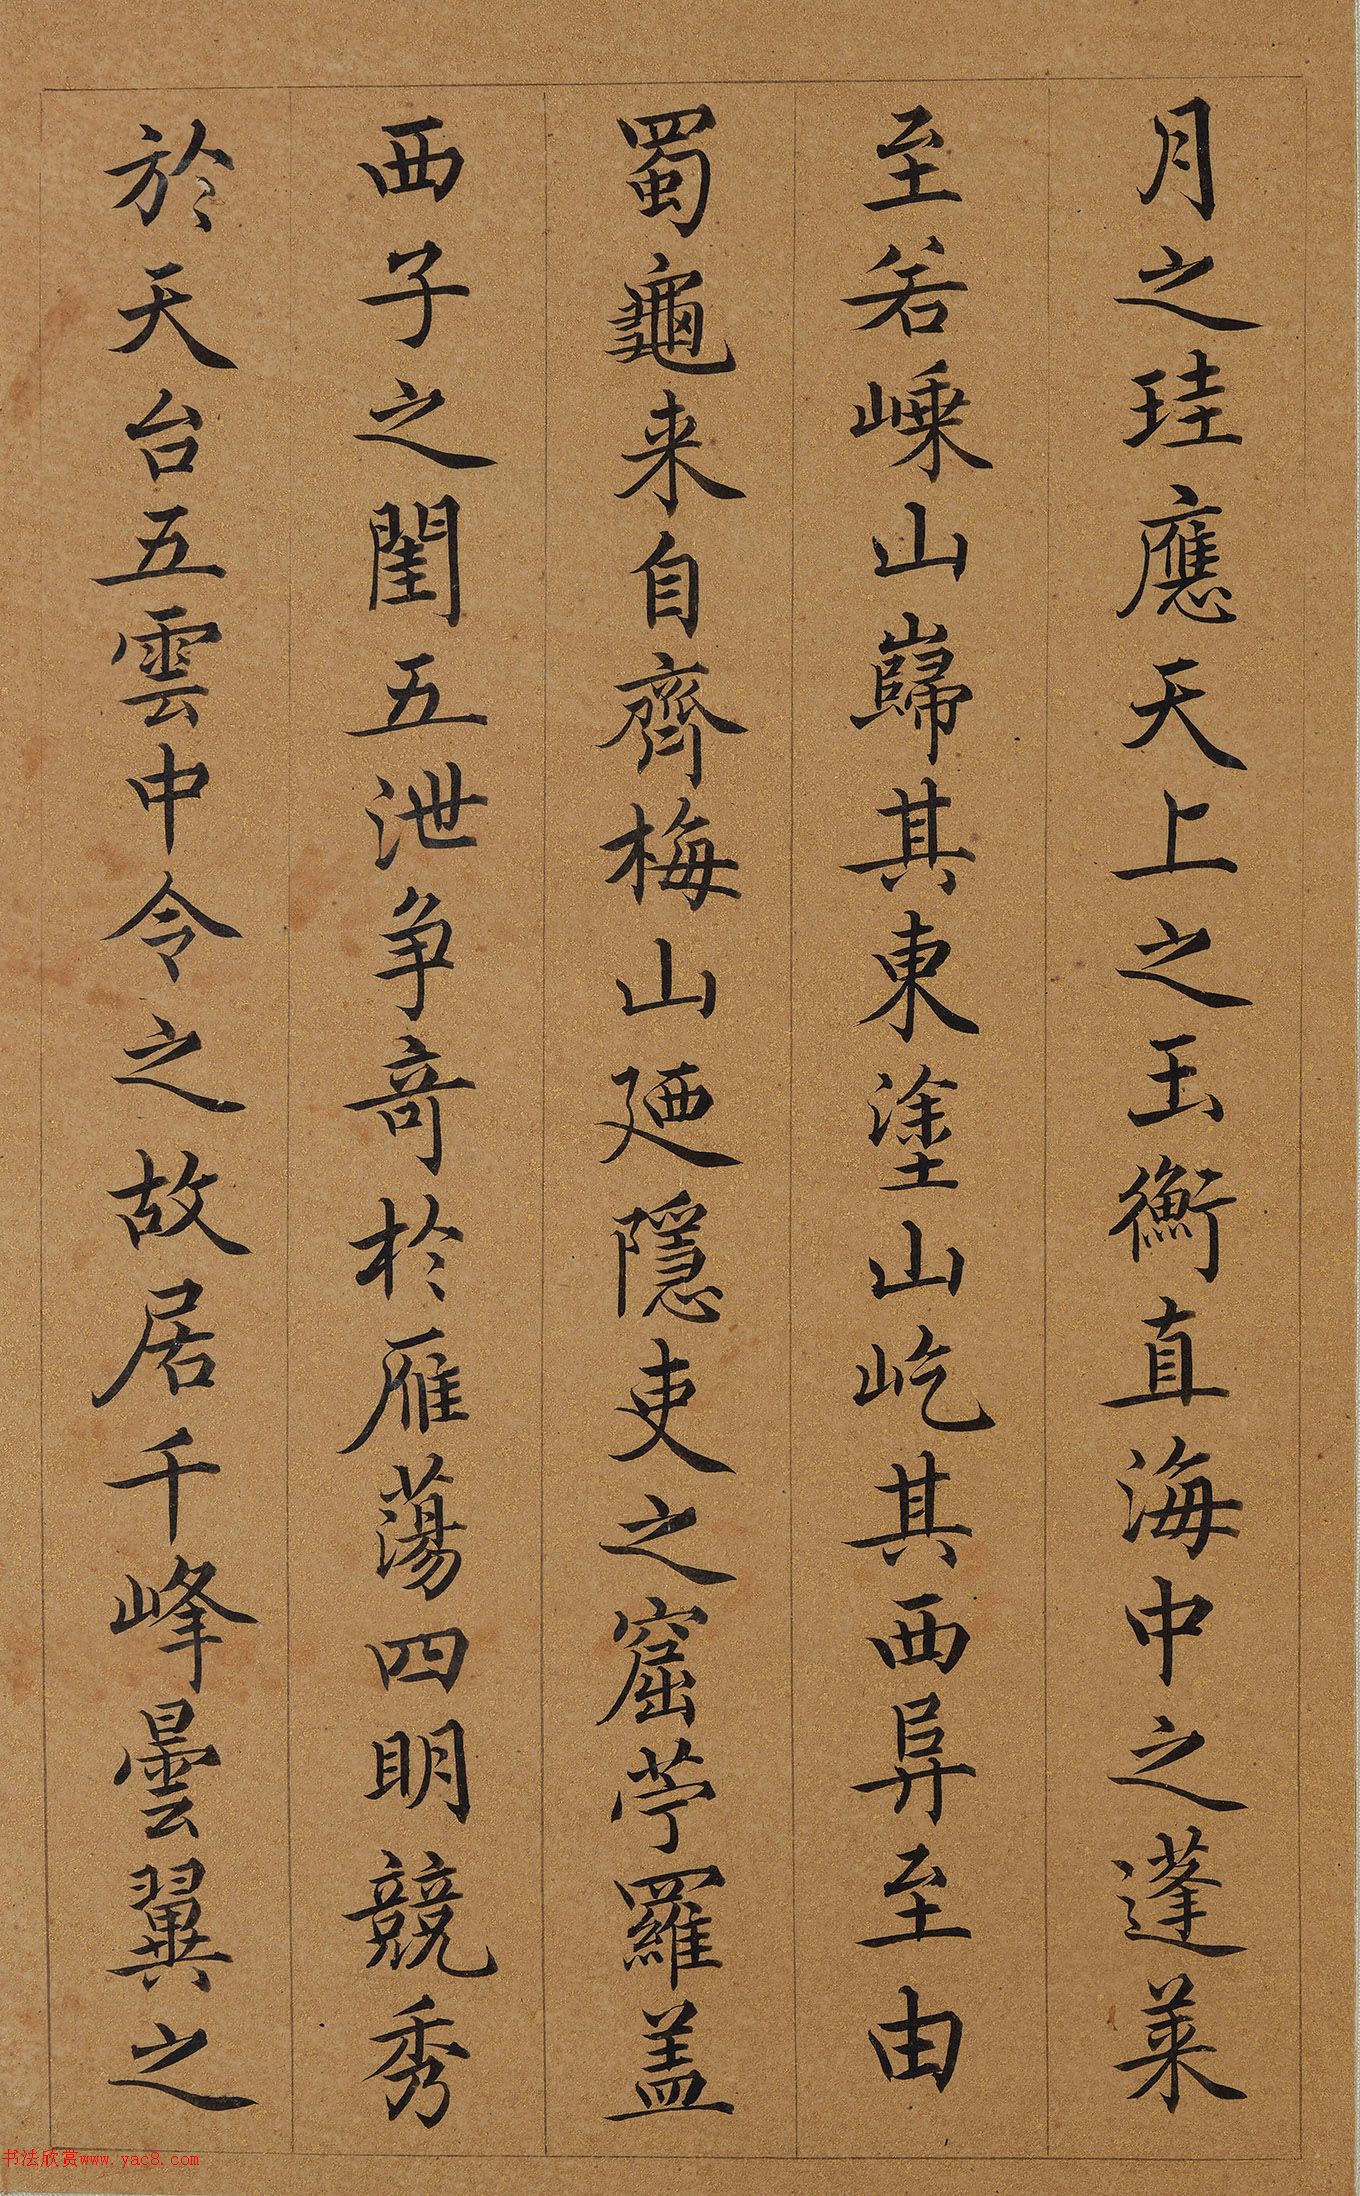 月之珪應天上之玉衡直海中之蓬莱
至若嵊山巋其東塗山屹其西舁至由
蜀龜来自齊梅山廼隱吏之窟苧羅盖
西子之閨五泄争竒於雁蕩四明競秀
於天台五雲中令之故居千峰曇翼之
书法欣赏www.yac8.com